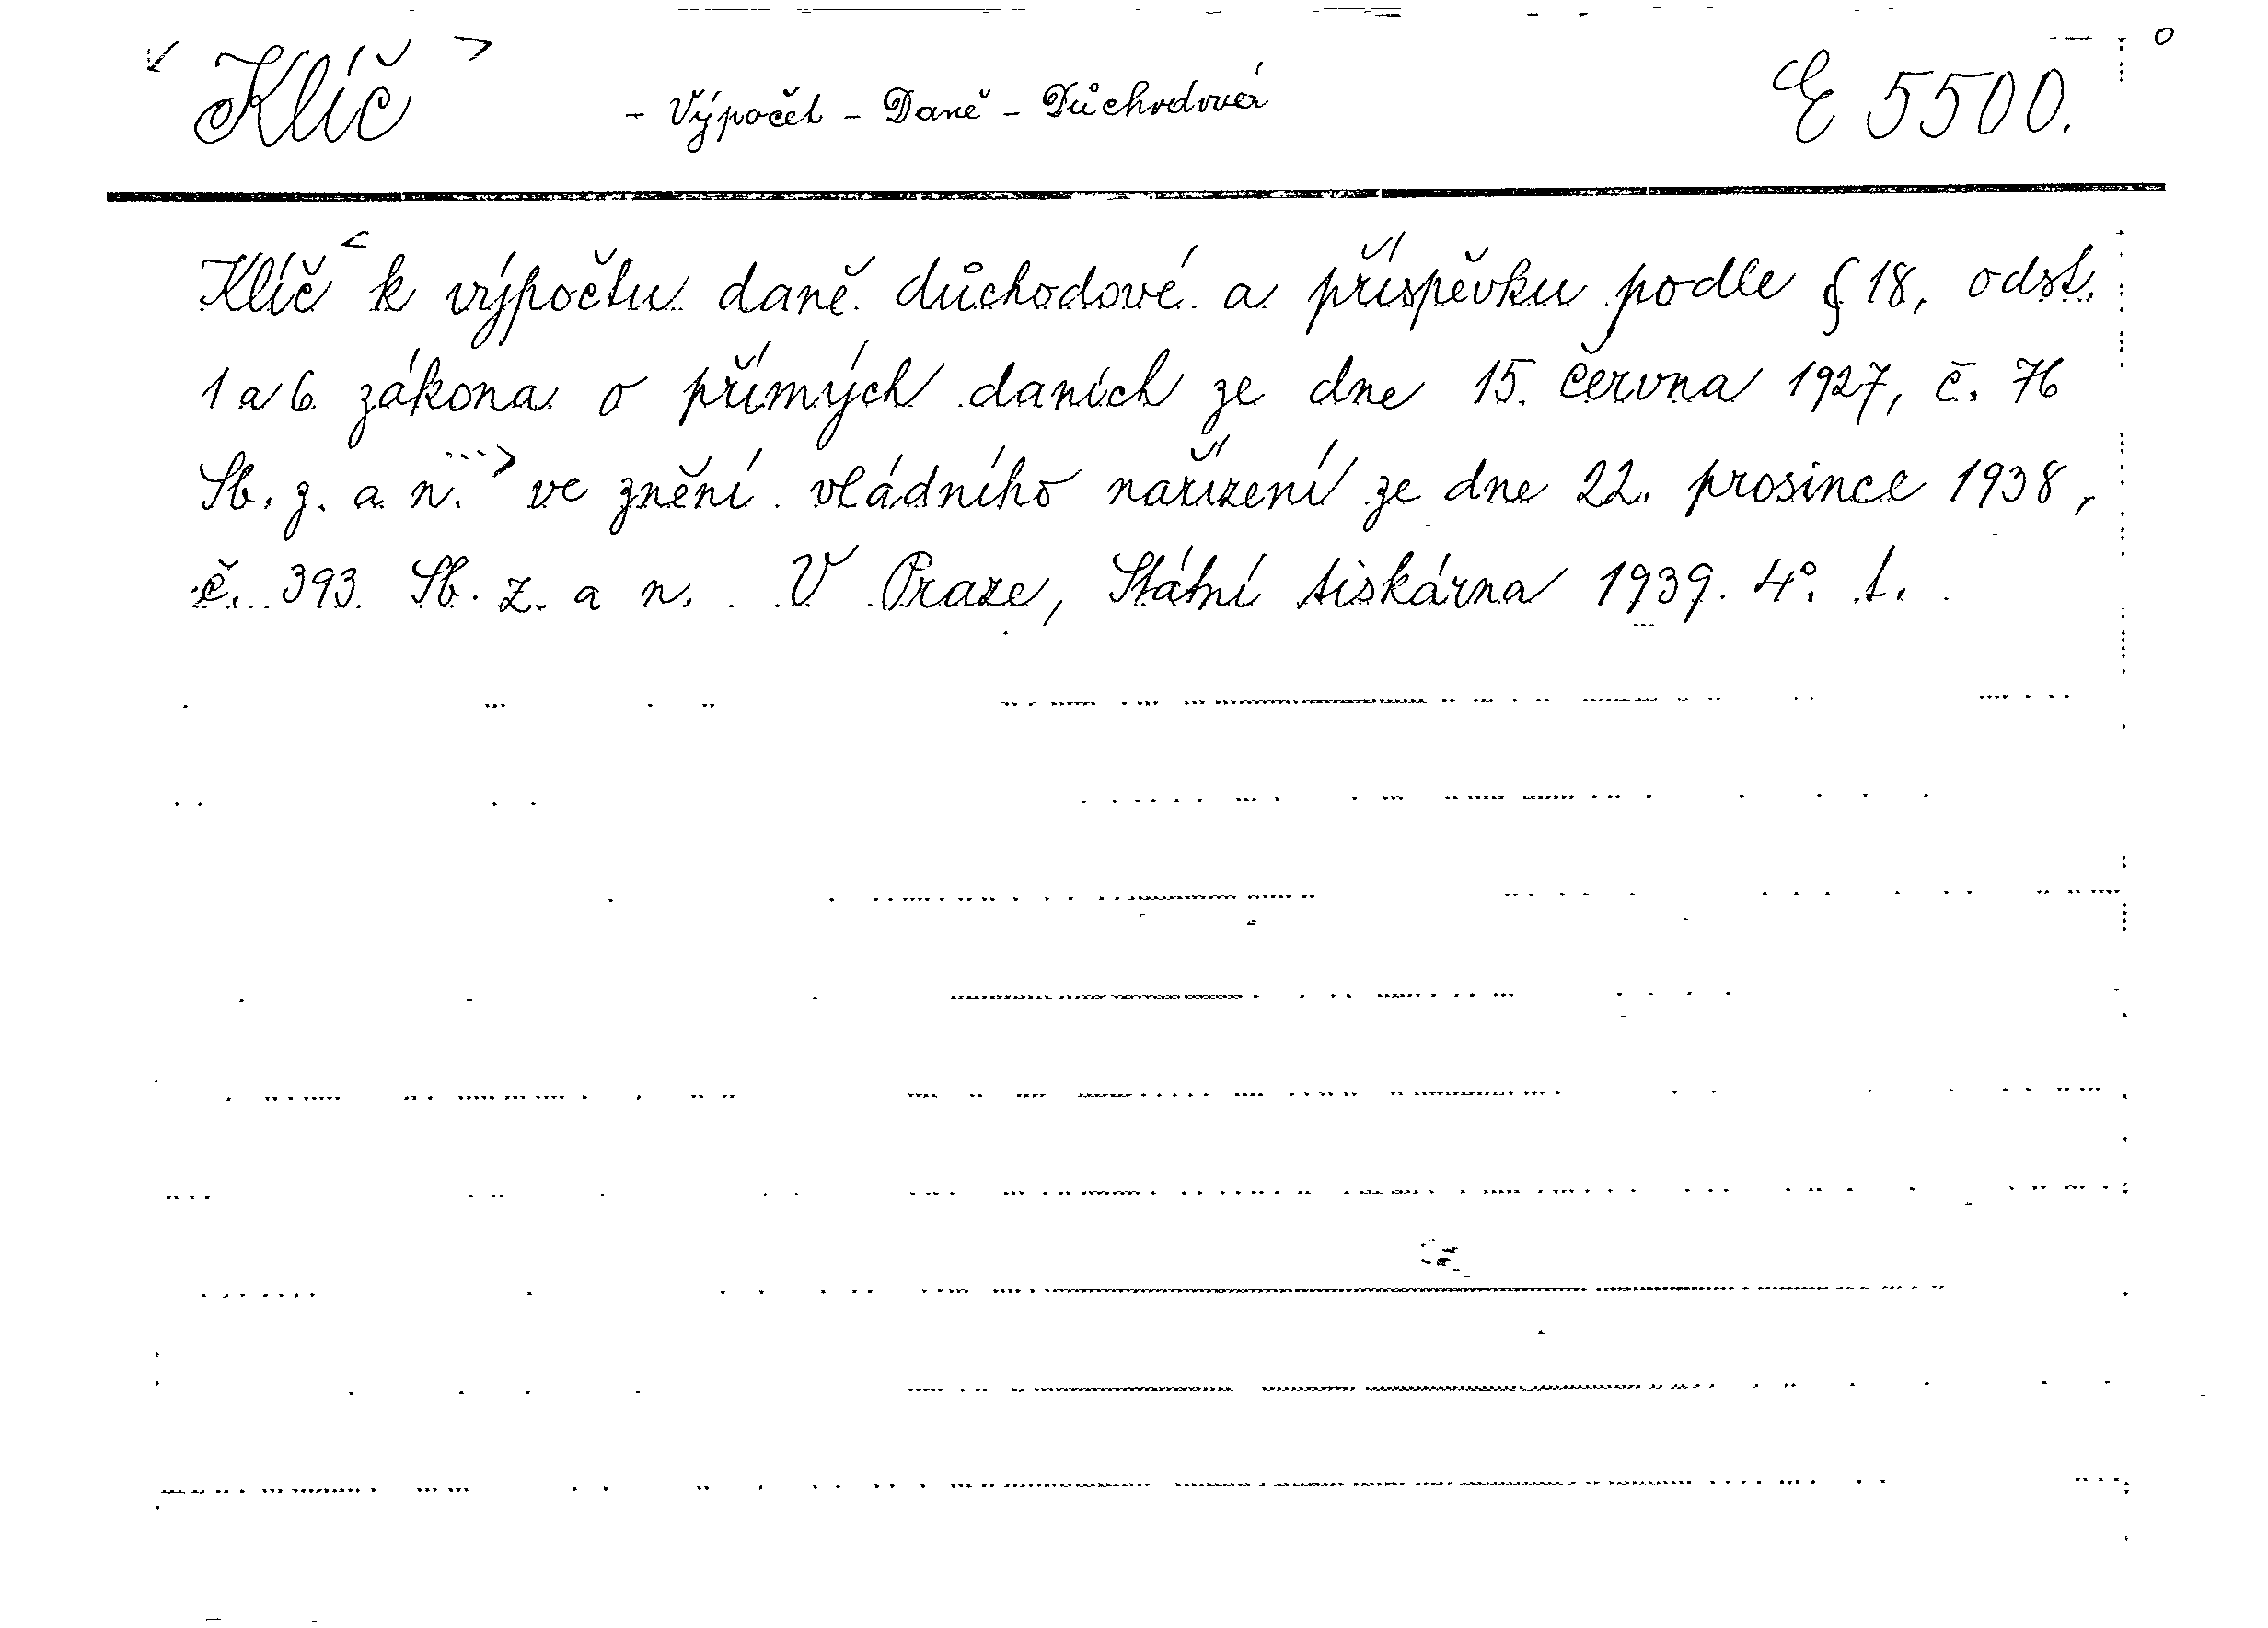 Klíč - Výpočet - Daně - Důchodová E 5500.
Klíč k výpočtu daně důchodové a příspěvku podle § 18, odst.
1 a 6 zákona o přímých daních ze dne 15. června 1927, č. 76
Sb. z. a n. ve znění vládního nařízení ze dne 22. prosince 1938,
č. 393 Sb. z. a n. V Praze, Státní tiskárna 1939. 4°. t.